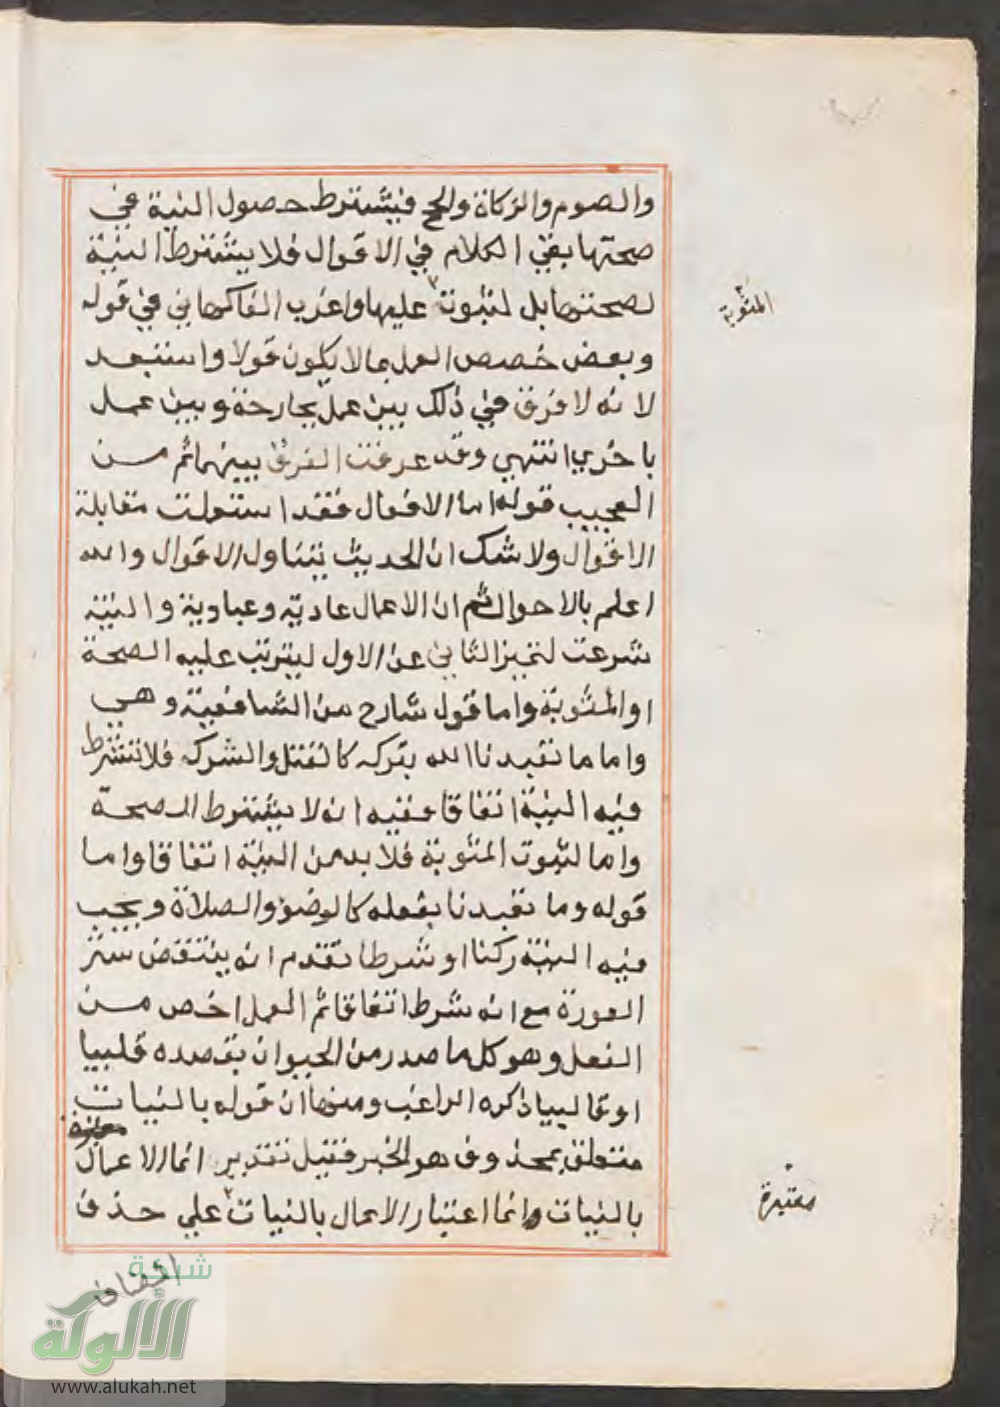 والصوم والزكاة والحج فيشترط حصول النية في
صحتها بقي الكلام في الاقوال فلا يشترط النية
لصحتها بل لثبوت عليها واغرب الفاكهاني في قوله
المثوبة
وبعض خصص العمل بما لا يكون قولا واستبعد
لانه لا فرق في ذلك بين عمل بجارحة وبين عمل
باخري انتهي وقد عرفت الفرق بينهما ثم من
العجيب قوله اما الافعال فقد استعملت مقابلة
الاقوال ولا شك ان الحديث يتناول الاقوال والله
اعلم بالاحوال ثم ان الاعمال عادية وعبادية والنية
شرعت لتميز الثاني عن الاول ليترتب عليه الصحة
او المثوبة واما قول شارح من الشافعية وهي
واما ما تقيدنا الله بتركه كالقتل والشرك فلا تشترط
فيه النية اتفاقا ففيه انه لا يشترط الصحة
واما لثبوت المثوبة فلا بد من النية اتفاقا واما
قوله وما تقيدنا بفعله كالوضوء والصلاة ويجب
فيه النية ركنا او شرطا تقدم انه ينتقض ستر
العورة مع انه شرط اتفاقا ثم العمل اخص من
الفعل وهو كل ما صدر من الحيوان بقصده قلبيا
او قالبيا ذكره الراغب ومنها ان قوله بالنيات
متعلق بمحذوف هو الخبر فقيل تقدير انما الاعمال
معتبرة
بالنيات وانما اعتبار الاعمال بالنيات علي حذف
المضاف
شبكة
الألوكة
www.alukah.net